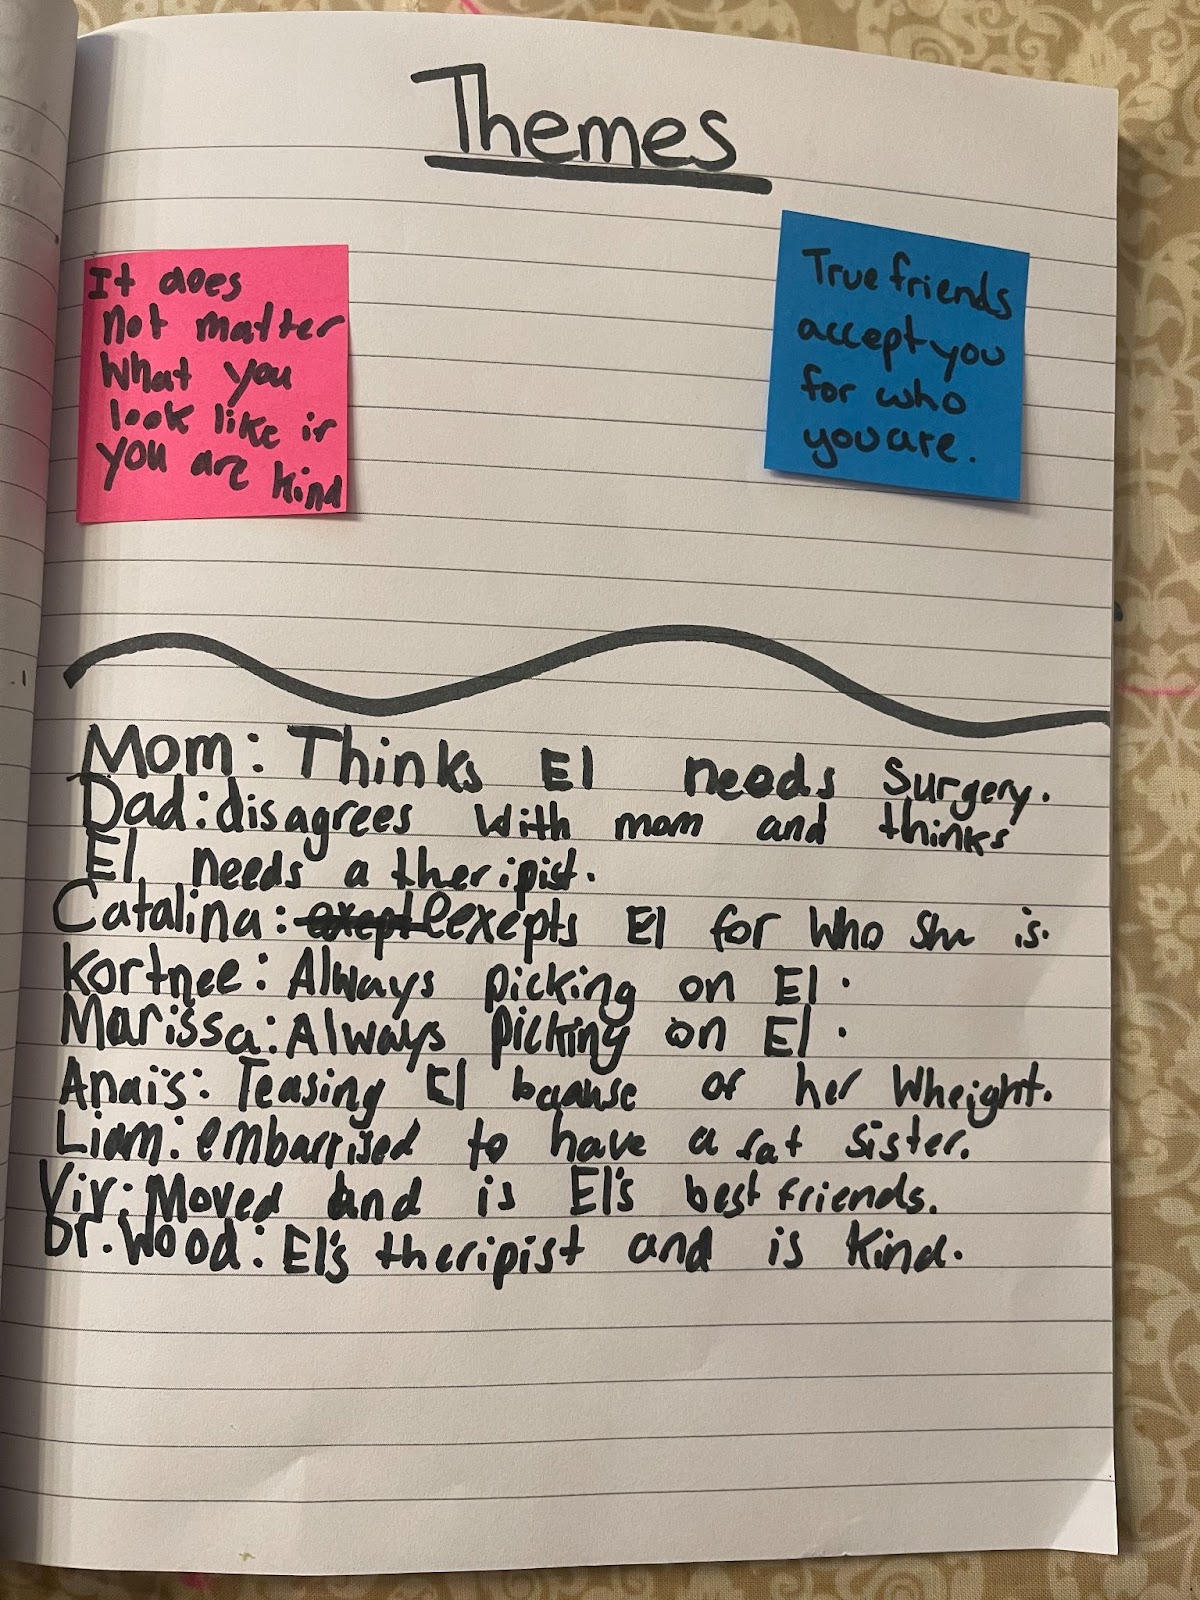 Themes
It does
not matter
what you
look like if
you are kind
True friends
accept you
for who
you are.
Mom: Thinks El needs Surgery.
Dad: disagrees with mom and thinks
El needs a theripist.
Catalina: exept eexepts El for who she is.
Kortnee: Always picking on El.
Marissa: Always picking on El.
Anaïs: Teasing El because of her Wheight.
Liam: embarrised to have a fat sister.
Viv: Moved and is El's best friends.
Dr. Wood: El's theripist and is kind.